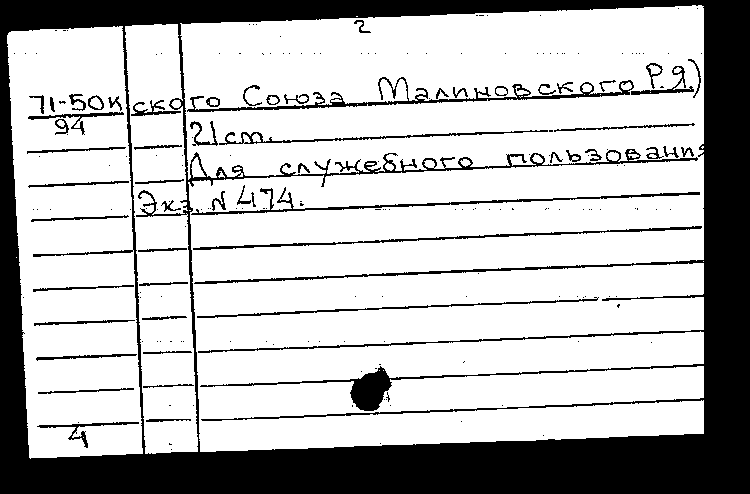 2
71-50к ского Союза Малиновского Р.Я.)
94 21 cm.
Для служебного пользования
Экз. N 474.
4